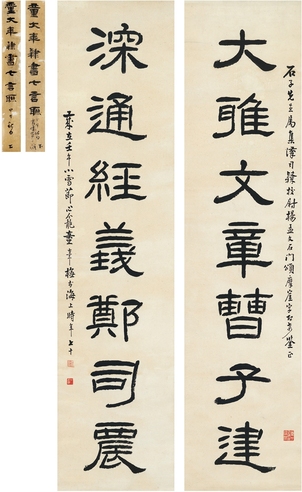 大雅文章曹子建
石子先生屬集漢司隸校尉楊孟文石門頌摩崖字即希鑒正
深通經義鄭司農
歲在壬午小雪節
海上時年七十
童大年隸書七言聯
童大年隸書七言聯